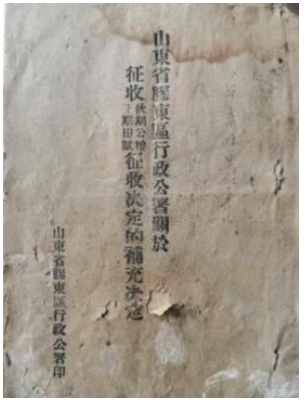 山東省膠東區行政公署關於
征收秋期公粮下期田賦征收决定的補充决定
山東省膠東區行政公署印